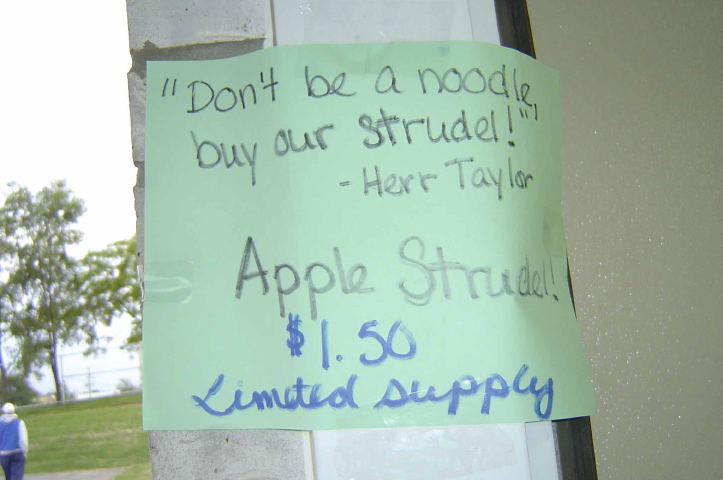 "Don't be a noodle,
buy our strudel!"
- Herr Taylor
Apple Strudel!
$1.50
Limited supply